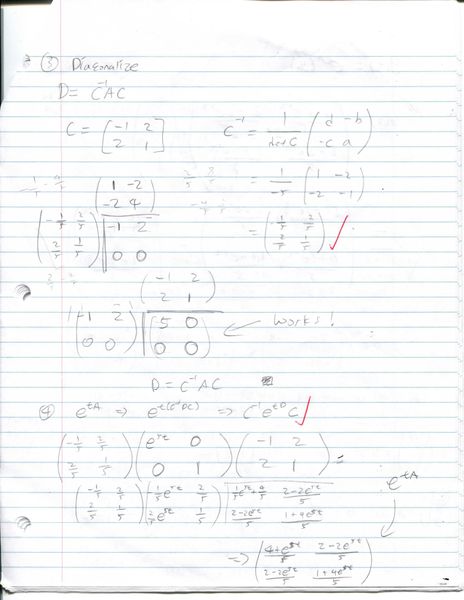 ③ Diagonalize
D = C⁻¹AC
C = [-1 2; 2 1]  C⁻¹ = 1/det C (d -b; -c a)
= 1/-5 (1 -2; -2 -1)
(1 -2; -2 4)
(-1/5 2/5; 2/5 1/5) | -1 2; 0 0
= (-1/5 2/5; 2/5 1/5) ✓
(-1 2; 2 1)
(-1 2; 0 0) | (5 0; 0 0) ← works!
D = C⁻¹AC
④ e^{tA} ⇒ e^{t(C⁻¹DC)} ⇒ C⁻¹e^{tD}C ✓
(-1/5 2/5; 2/5 1/5) (e^{5t} 0; 0 1) (-1 2; 2 1) =
(-1/5 2/5; 2/5 1/5) (-1/5 e^{5t} 2/5; 2/5 e^{5t} 1/5) 1/5 e^{5t} + 4/5 2-2e^{5t}/5; 2-2e^{5t}/5 1+4e^{5t}/5
e^{tA}
⇒ (4+e^{5t}/5 2-2e^{5t}/5; 2-2e^{5t}/5 1+4e^{5t}/5)